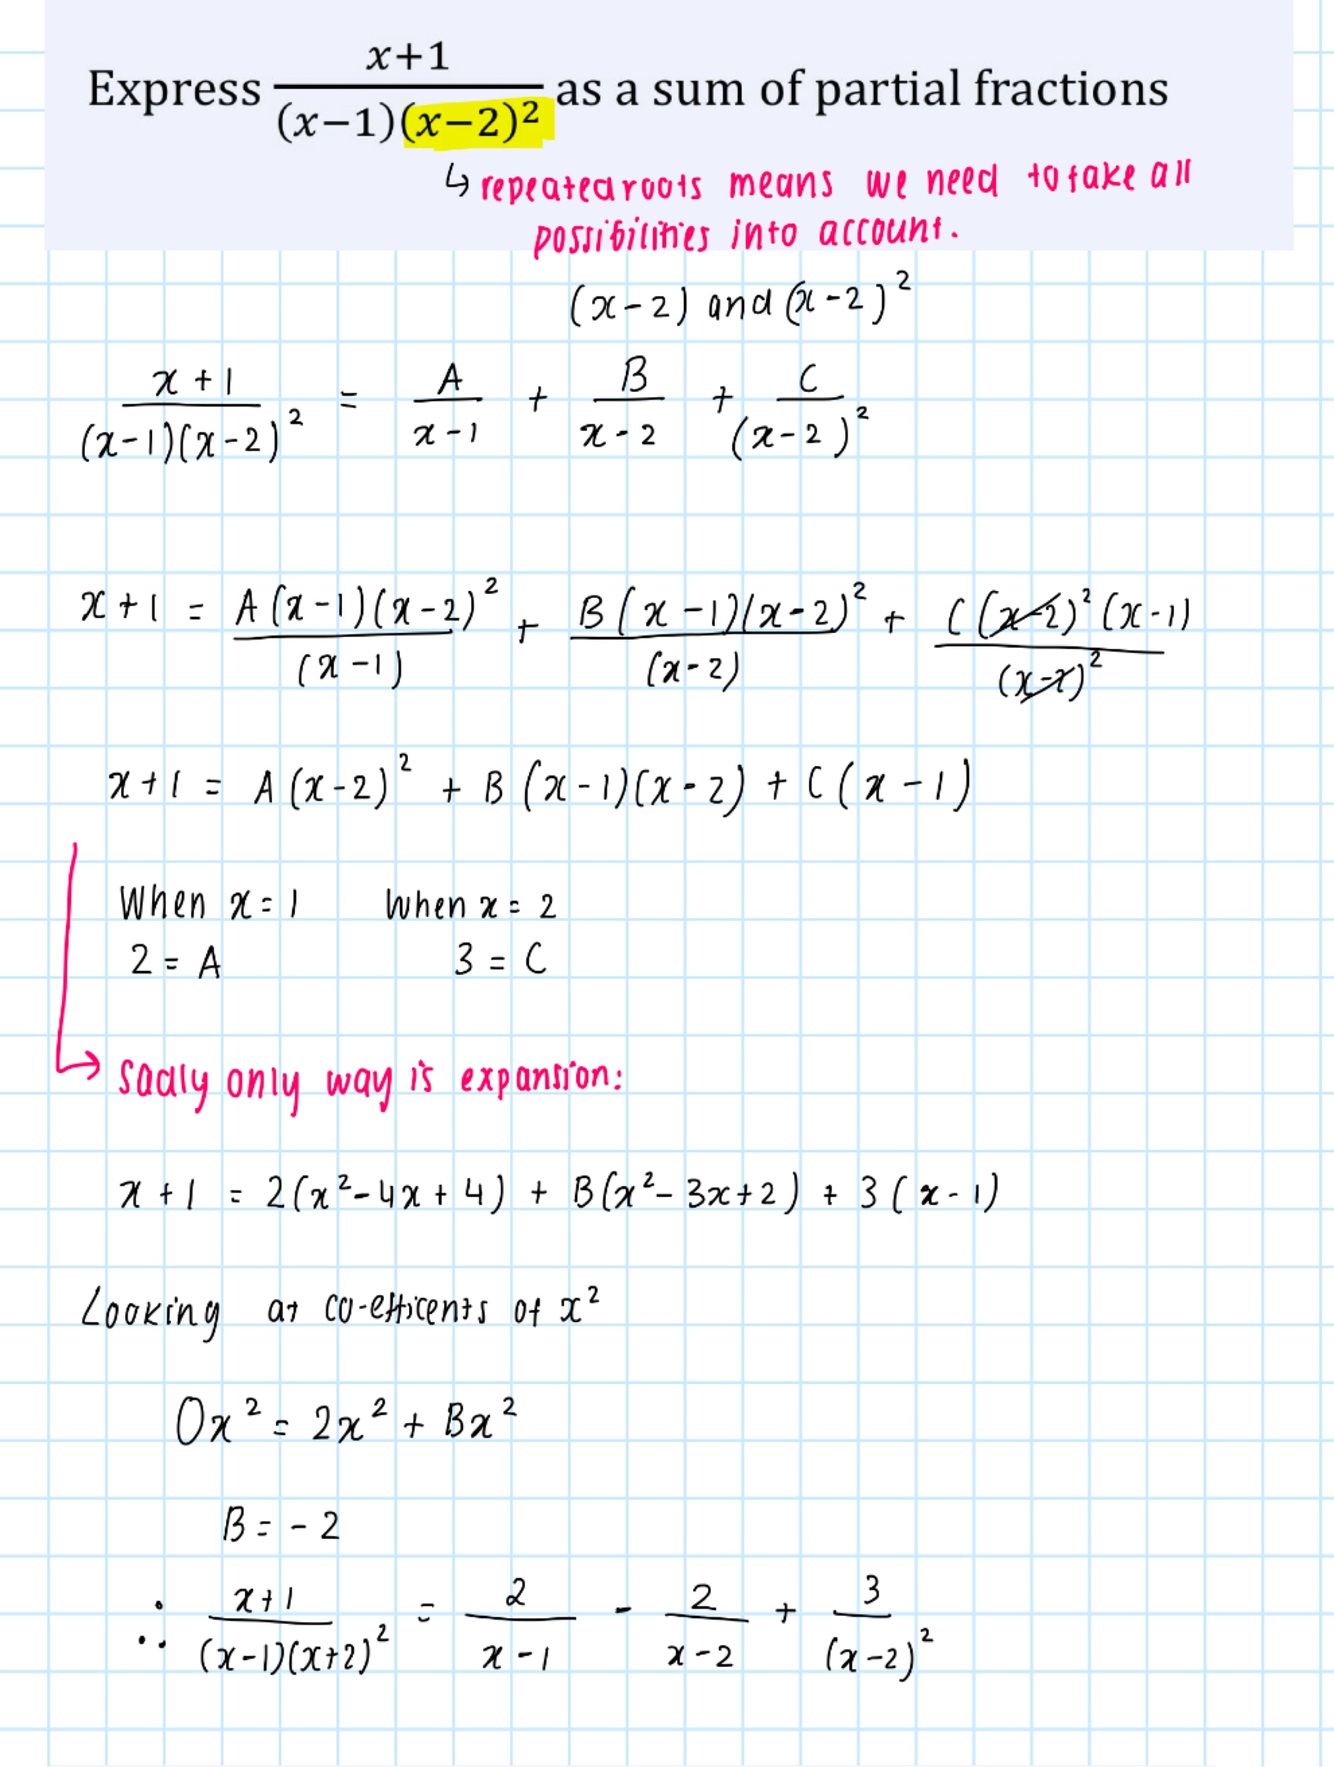 Express x+1/((x−1)(x−2)²) as a sum of partial fractions
↳ repeated roots means we need to take all
possibilities into account.
(x-2) and (x-2)²
x+1/((x-1)(x-2)²) = A/(x-1) + B/(x-2) + C/(x-2)²
x+1 = A(x-1)(x-2)²/(x-1) + B(x-1)(x-2)²/(x-2) + C(x-2)²(x-1)/(x-2)²
x+1 = A(x-2)² + B(x-1)(x-2) + C(x-1)
When x=1 When x=2
2 = A 3 = C
Sadly only way is expansion:
x+1 = 2(x²-4x+4) + B(x²-3x+2) + 3(x-1)
Looking at co-efficents of x²
0x² = 2x² + Bx²
B = -2
∴ x+1/((x-1)(x+2)²) = 2/(x-1) - 2/(x-2) + 3/(x-2)²